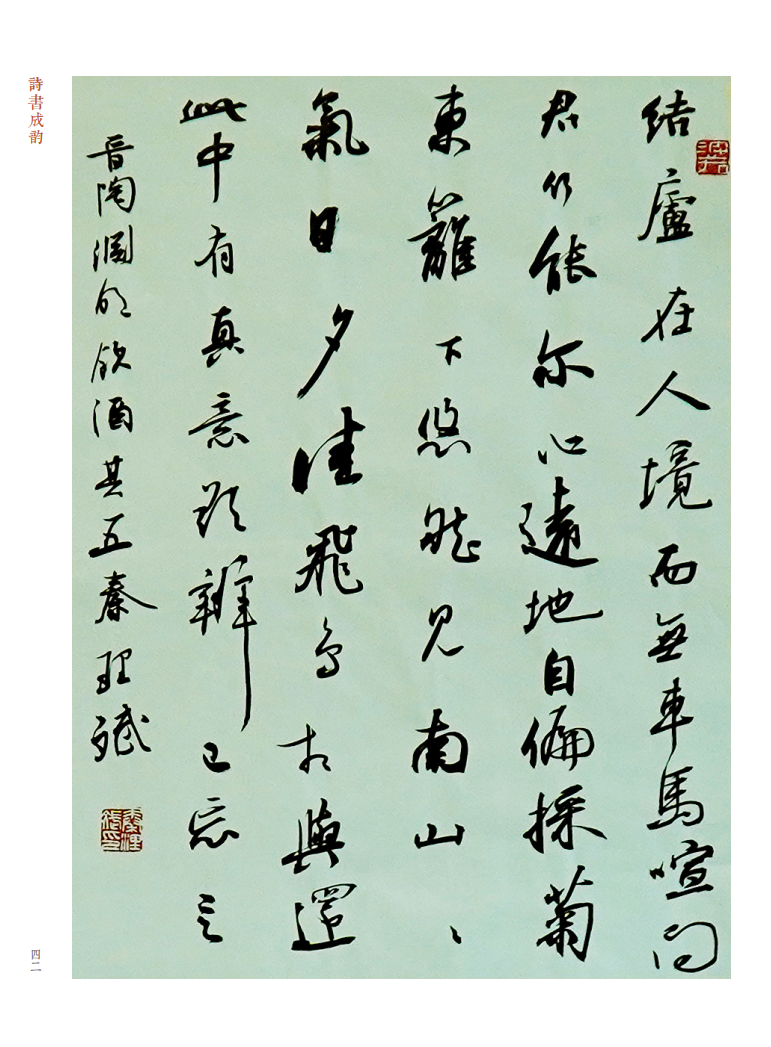 詩書成韵
结廬在人境而無車馬喧问
君何能尔心遠地自偏採菊
東籬下悠然见南山〻
氣日夕佳飛鸟相與還
此中有真意欲辨已忘言
晋陶渊明飲酒其五秦理斌
四二